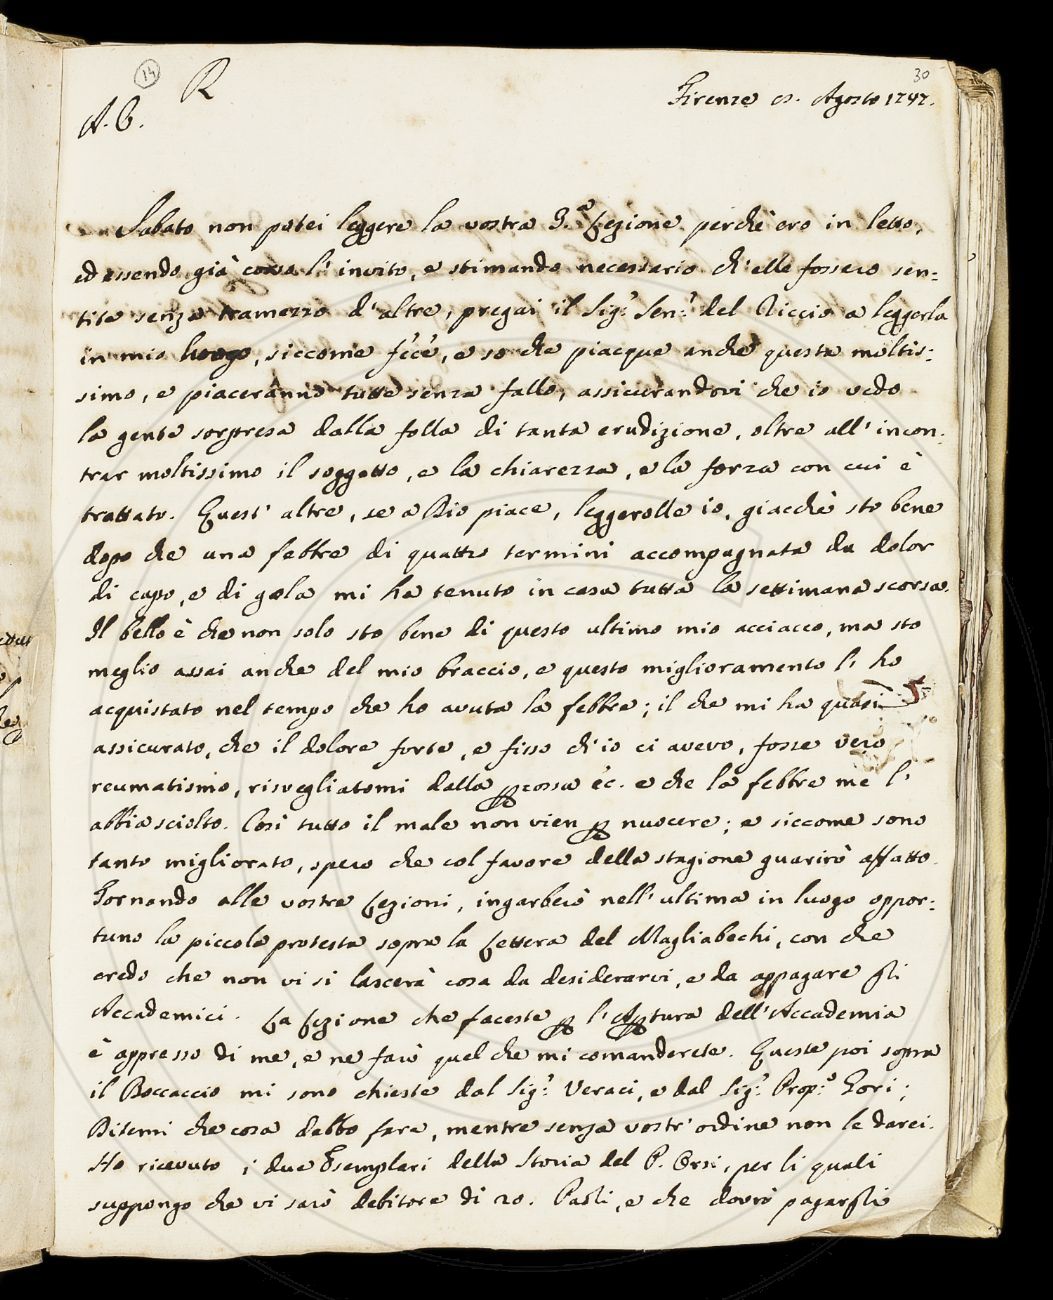 14
R
30
A. C.
Firenze Agosto 1747.
Sabato non potei leggere la vostra 3.ª Lezione perchè ero in letto,
ed essendo già corso l'invito, e stimando necessario ch'elle fossero sen=
tite senza tramezzo d'altre, pregai il Sig.r Sen.r del Riccio a leggerla
in mio luogo, siccome fece, e so che piacque anche questa moltis=
simo, e piaceranno tutte senza fallo, assicurandovi che io vedo
la gente sorpresa dalla folla di tanta erudizione, oltre all'incon=
trar moltissimo il soggetto, e la chiarezza, e la forza con cui è
trattato. Quest'altre, se a Dio piace, leggerolle io, giacchè sto bene
dopo che una febbre di quattro termini accompagnata da dolor
di capo, e di gola mi ha tenuto in casa tutta la settimana scorsa.
Il bello è che non solo sto bene di questo ultimo mio acciacco, ma sto
meglio assai anche del mio braccio, e questo miglioramento l'ho
acquistato nel tempo che ho avuta la febbre; il che mi ha quasi
assicurato, che il dolore forte, e fisso ch'io ci avevo, fosse vero
reumatismo, risvegliatomi dalla percossa &c. e che la febbre me l'
abbia sciolto. Così tutto il male non vien per nuocere; e siccome sono
tanto migliorato, spero che col favore della stagione guarirò affatto.
Tornando alle vostre Lezioni, ingarberò nell'ultima in luogo oppor=
tuno la piccola protesta sopra la Lettera del Magliabechi, con che
credo che non vi si lascerà cosa da desiderarvi, e da appagare gli
Accademici. La Lezione che faceste per l'Apertura dell'Accademia
è appresso di me, e ne farò quel che mi comanderete. Queste poi sopra
il Boccaccio mi sono chieste dal Sig.r Veraci, e dal Sig.r Prop.o Gori;
Ditemi che cosa debbo fare, mentre senza vostr'ordine non le darei.
Ho ricevuto i due Esemplari della Storia del P. Orsi, per li quali
suppongo che vi sarò debitore di 20. Paoli, e che dovrò pagargli